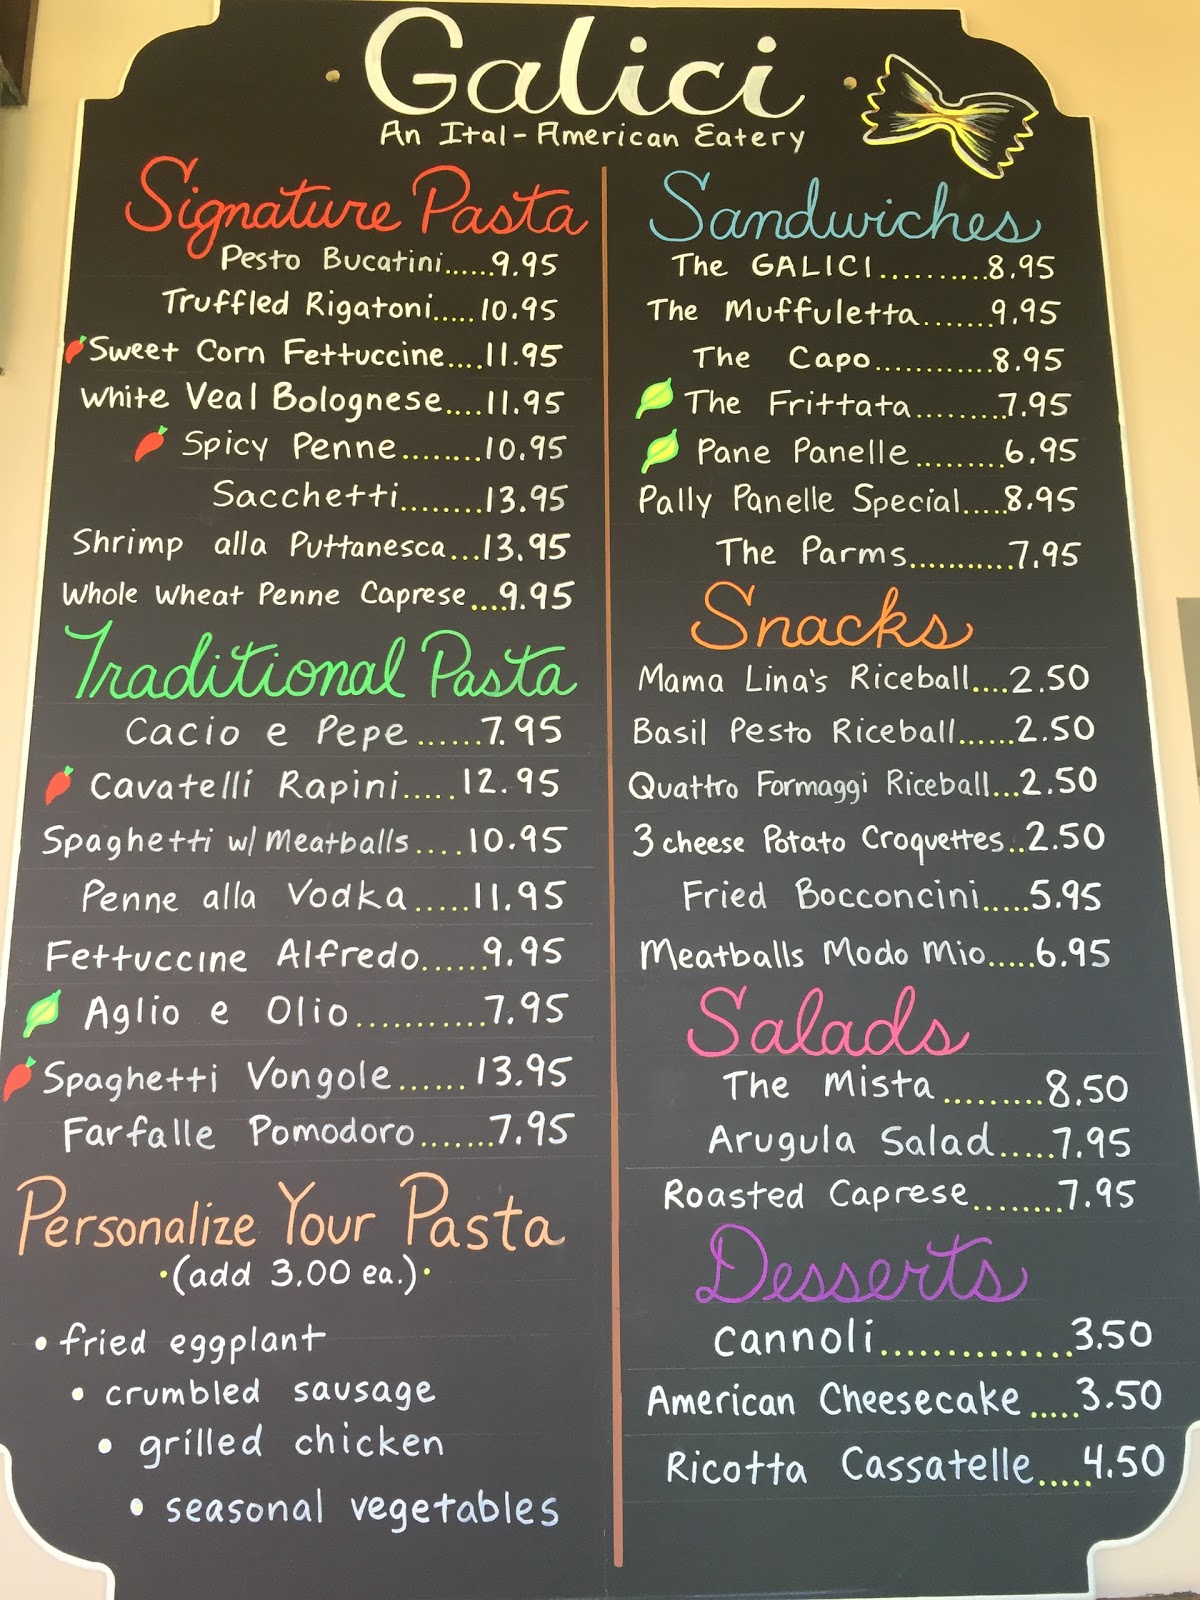 Galici
An Ital-American Eatery
Signature Pasta
Pesto Bucatini......9.95
Truffled Rigatoni.....10.95
Sweet Corn Fettuccine....11.95
White Veal Bolognese....11.95
Spicy Penne........10.95
Sacchetti........13.95
Shrimp alla Puttanesca...13.95
Whole Wheat Penne Caprese....9.95
Traditional Pasta
Cacio e Pepe......7.95
Cavatelli Rapini.....12.95
Spaghetti w/ Meatballs....10.95
Penne alla Vodka.....11.95
Fettuccine Alfredo......9.95
Aglio e Olio...........7.95
Spaghetti Vongole......13.95
Farfalle Pomodoro.......7.95
Personalize Your Pasta
•(add 3.00 ea.)•
• fried eggplant
• crumbled sausage
• grilled chicken
• seasonal vegetables
Sandwiches
The GALICI..........8.95
The Muffuletta.......9.95
The Capo............8.95
The Frittata.........7.95
Pane Panelle.........6.95
Pally Panelle Special.....8.95
The Parms...........7.95
Snacks
Mama Lina's Riceball....2.50
Basil Pesto Riceball......2.50
Quattro Formaggi Riceball...2.50
3 cheese Potato Croquettes..2.50
Fried Bocconcini.....5.95
Meatballs Modo Mio.....6.95
Salads
The Mista.........8.50
Arugula Salad.....7.95
Roasted Caprese........7.95
Desserts
Cannoli..............3.50
American Cheesecake.....3.50
Ricotta Cassatelle.....4.50